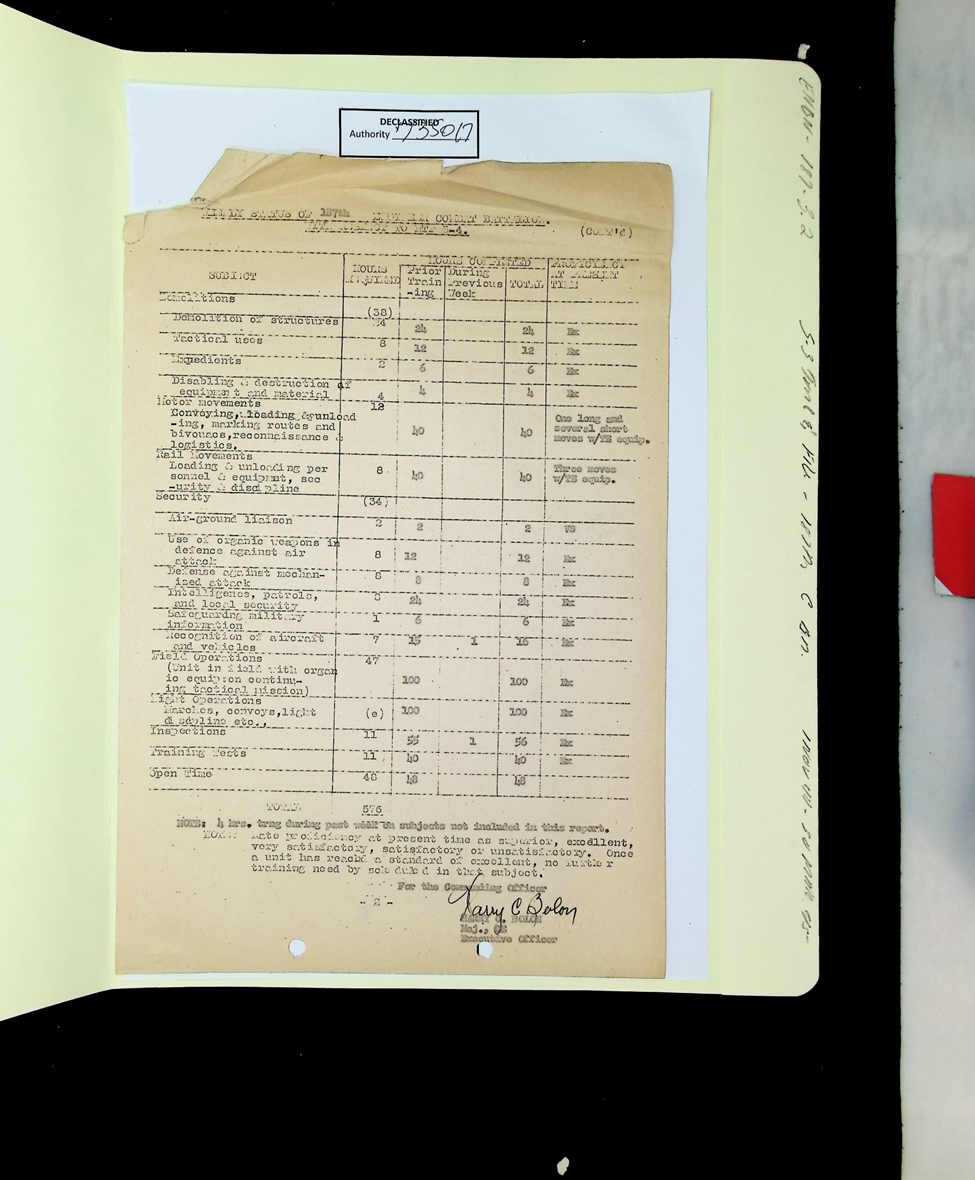 DECLASSIFIED
Authority 735017
STATUS OF 187th COMBAT BATTALION.
(CONT'd)
SUBJECT HOURS REQUIRED HOURS COMPLETED PROFICIENCY AT PRESENT TIME
Prior Train -ing During Previous Week TOTAL
Demolitions (38)
Demolition of structures 24 24 Ex
Tactical uses 8 12 12 Ex
Expedients 2 6 6 Ex
Disabling & destruction of
equipment and material 4 4 4 Ex
Motor movements 12
Convoying, loading & unload
-ing, marking routes and 40 40 One long and several short moves w/TE equip.
bivouacs, reconnaissance &
logistics.
Rail Movements
Loading & unloading per 8 40 40 Three moves w/TE equip.
sonnel & equipmnt, sec
-urity & discipline
Security (34)
Air-ground liaison 2 2 2 VS
Use of organic weapons in
defence against air 8 12 12 Ex
attack
Defense against mechan- 8 8 8 Ex
ized attack
Intelligence, patrols, 8 24 24 Ex
and local security
Safeguardng military 1 6 6 Ex
information
Recognition of aircraft 7 15 1 16 Ex
and vehicles
Field Operations 47
(Unit in field with organ
ic equip:on continu- 100 100 Ex
ing tactical mission)
Night Operations
Marches, convoys, light (e) 100 100 Ex
discpline etc.,
Inspections 11 55 1 56 Ex
Training Tests 11 40 40 Ex
Open Time 48 48 48
TOTAL 576
NOTE: 4 hrs. trng during past week on subjects not included in this report.
NOTE: Rate proficiency at present time as superior, excellent,
very satisfactory, satisfactory or unsatisfactory. Once
a unit has reachd a standard of excellent, no further
training need by scheduled in that subject.
For the Commanding Officer
- 2 -
Harry C Bolon
HARRY C. BOLON
Maj., CE
Executive Officer
ENBN-187-3.2
187th C Bn.